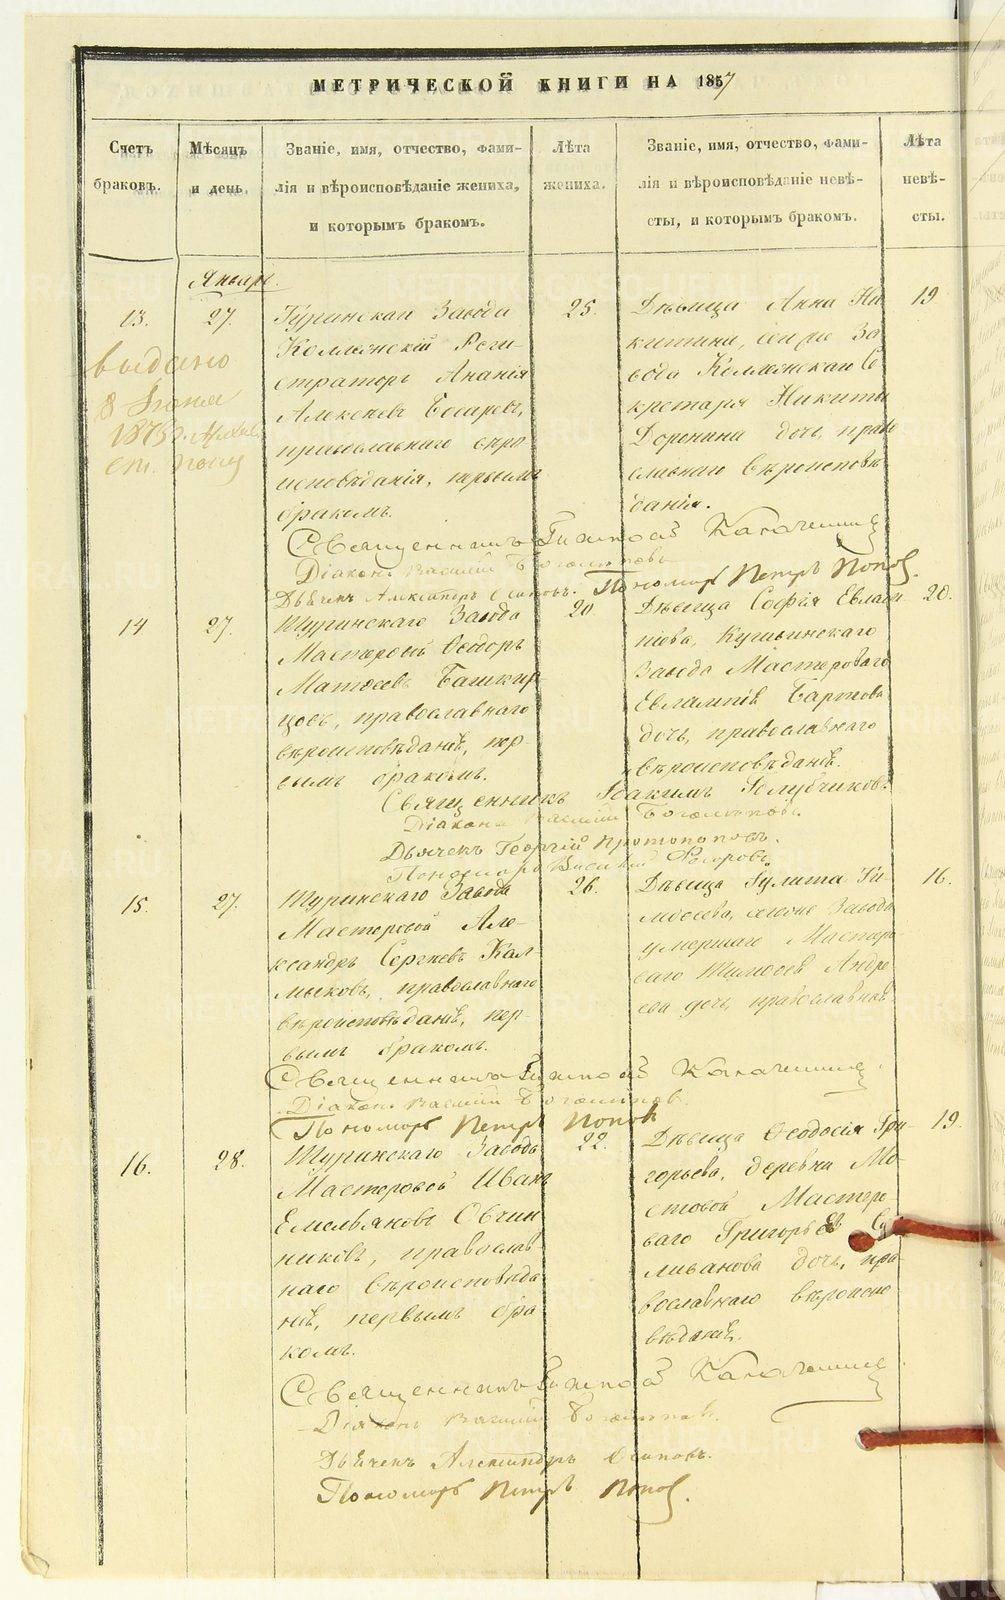 МЕТРИЧЕСКОЙ КНИГИ НА 1857
Счетъ браковъ.
Мѣсяцъ и день.
Званіе, имя, отчество, фами-
лія и вѣроисповѣданіе жениха,
и которымъ бракомъ.
Лѣта жениха.
Званіе, имя, отчество, фами-
лія и вѣроисповѣданіе невѣ-
сты, и которымъ бракомъ.
Лѣта невѣ-
сты.
Январь.
13.
27.
выдано
8
1875
Завода
Коллежскій Реги-
стратор Ананія
Алексѣевъ
православнаго вѣро
исповѣданія, первымъ
бракомъ.
25.
Дѣвица Анна Ни
китина, сего За
вода Коллежскаго Се
кретаря Никиты
Доронина дочь, право
славнаго вѣроисповѣ
данія.
19
Священникъ
Діаконъ Василій
Дьячекъ Александръ Осиповъ. Пономарь Петръ Поповъ.
14
27.
Туринскаго Завода
Мастеровой Ѳеодоръ
Матѳеевъ Башкир
цовъ, православнаго
вѣроисповѣданія, пер
вымъ бракомъ.
20
Дѣвица Софія Евлам
піева, Кушвинскаго
Завода Мастероваго
Евлампія Бартова
дочь, православнаго
вѣроисповѣданія.
20.
Священникъ Іоакимъ Голубчиковъ
Діаконъ Василій
Дьячекъ Георгій Протопоповъ.
Пономарь
15.
27.
Туринскаго Завода
Мастеровой Але-
ксандръ Сергѣевъ Кал-
мыковъ, православнаго
вѣроисповѣданія, пер-
вымъ бракомъ.
26.
Дѣвица Іулита Ти
моѳеева, Завода
умершаго Мастеро-
ваго Тимоѳея Андре
ева дочь, православная
16.
Священникъ
Діаконъ Василій
Пономарь Петръ Поповъ
16.
28.
Туринскаго Завода
Мастеровой Иванъ
Емельяновъ Овчин
никовъ, православ
наго вѣроисповѣда
нія, первымъ бра
комъ.
22.
Дѣвица Ѳеодосія Гри-
горьева, деревни Мо
стовой Мастеро-
ваго Григорья Се
ливанова дочь, пра-
вославнаго вѣроиспо
вѣданія.
19.
Священникъ
Діаконъ Василій
Дьячекъ Александръ Осиповъ.
Пономарь Петръ Поповъ.